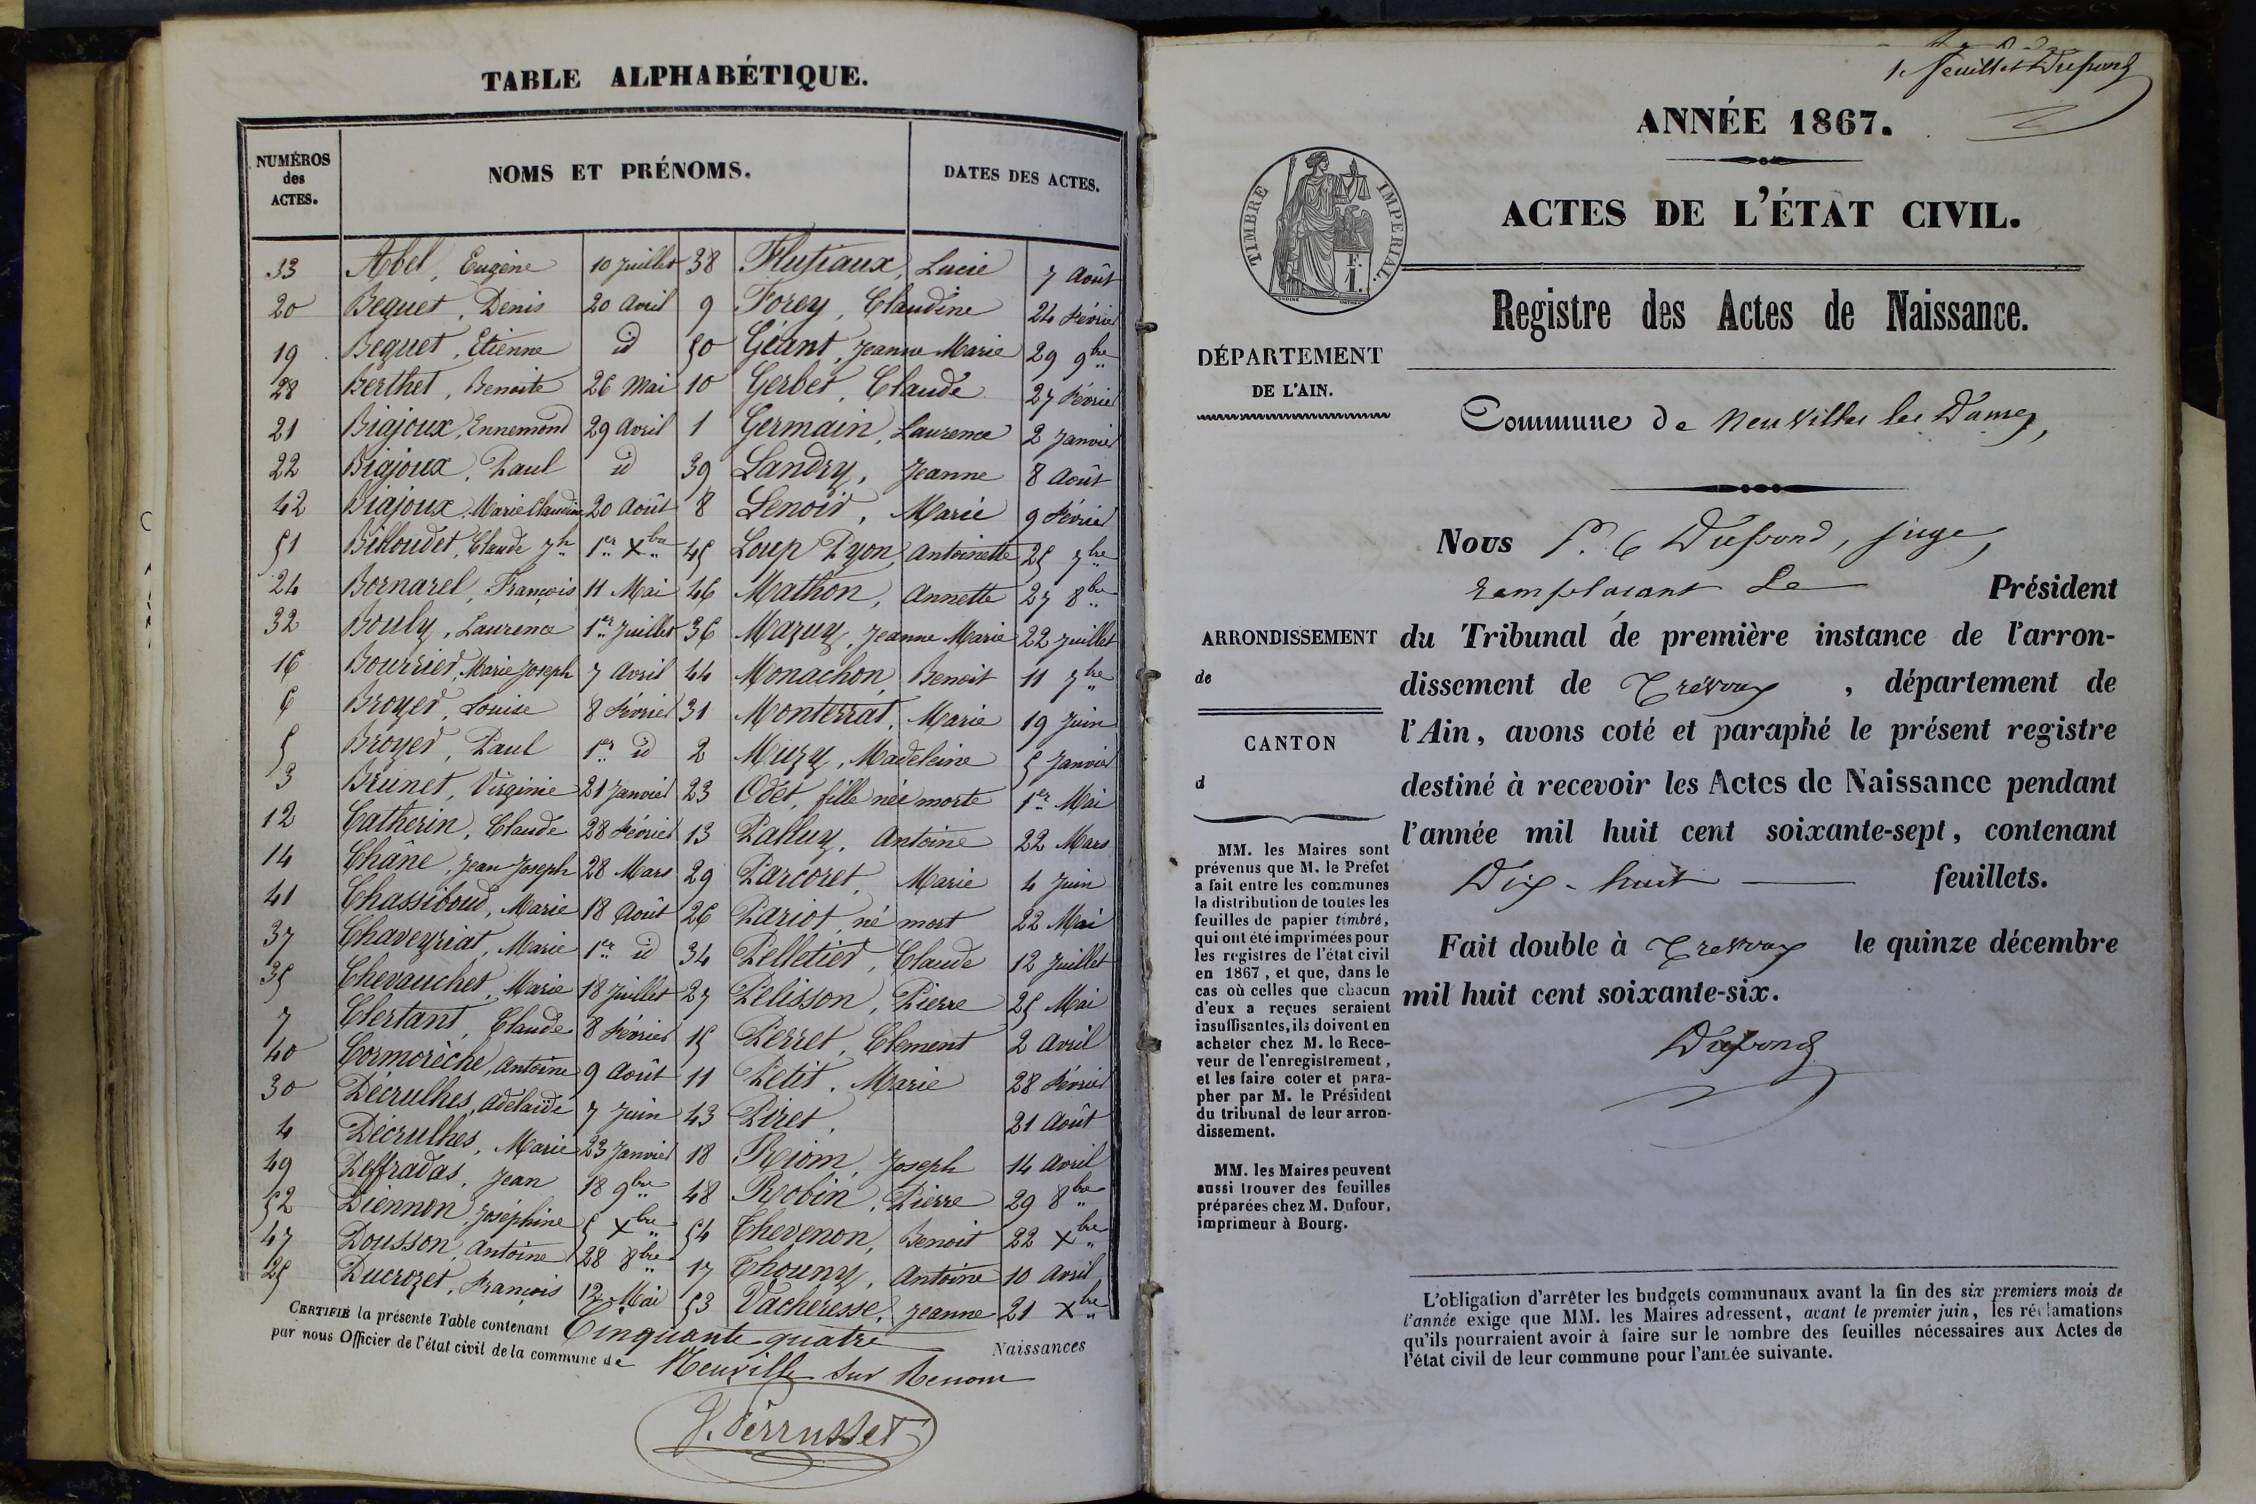 TABLE ALPHABÉTIQUE.
NUMÉROS des ACTES. NOMS ET PRÉNOMS. DATES DES ACTES.
33 Abel, Eugène 10 Juillet 38 Flusiaux, Lucie 7 Août
20 Bequet, Denis 20 Avril 9 Forey, Claudine 24 Février
19 Bequet, Etienne id 50 Géant, Jeanne Marie 29 9bre
28 Berthet, Benoite 26 Mai 10 Gerbet, Claude 27 Février
21 Biajoux, Ennemond 29 Avril 1 Germain, Laurence 2 Janvier
22 Biajoux, Paul id 39 Landry, Jeanne 8 Août
42 Biajoux, Marie Claudine 20 Août 8 Lenoir, Marie 9 Février
51 Billoudet, Claude Jh 1er Xbre 45 Loup Pyon, Antoinette 25 7bre
24 Bornarel, François 11 Mai 46 Mathon, Annette 27 8bre
32 Bouly, Laurence 1er Juillet 36 Mazuy, Jeanne Marie 22 Juillet
16 Bourrier, Marie Joseph 7 Avril 44 Monachon, Benoit 11 7bre
6 Broyer, Louise 8 Février 31 Monterrat, Marie 19 Juin
5 Broyer, Paul 1er id 2 Muzy, Madeleine 5 Janvier
3 Brunet, Virginie 21 Janvier 23 Odet, fille née morte 1er Mai
12 Catherin, Claude 28 Février 13 Palluy, Antoine 22 Mars
14 Châne, Jean Joseph 28 Mars 29 Parcoret, Marie 4 Juin
41 Chassiboud, Marie 18 Août 26 Pariot, né mort 22 Mai
37 Chaveyriat, Marie 1er id 34 Pelletier, Claude 12 Juillet
35 Chevauchet, Marie 18 Juillet 27 Pelisson, Pierre 25 Mai
7 Clertant, Claude 8 Février 15 Perret, Clement 2 Avril
40 Cormorèche, Antoine 9 Août 11 Petit, Marie 28 Février
30 Décrulhes, Adélaïde 7 Juin 43 Piret, 21 Août
4 Décrulhes, Marie 23 Janvier 18 Riom, Joseph 14 Avril
49 Deffradas, Jean 18 9bre 48 Robin, Pierre 29 8bre
52 Diennon, Joséphine 5 Xbre 54 Thevenon, Benoit 22 Xbre
47 Dousson, Antoine 28 8bre 17 Thouny, Antoine 10 Avril
25 Ducrozet, François 12 Mai 53 Vacheresse, Jeanne 21 Xbre
CERTIFIÉ la présente Table contenant Cinquante quatre Naissances
par nous Officier de l'état civil de la commune de Neuville sur Renom
J. Perrusset
1e feuillet Dufour
ANNÉE 1867.
TIMBRE IMPÉRIAL.
F.
1.
ACTES DE L'ÉTAT CIVIL.
Registre des Actes de Naissance.
DÉPARTEMENT
DE L'AIN.
Commune de Neuville les Dames,
Nous P. C Dupond, juge,
remplacant Le Président
ARRONDISSEMENT
de
CANTON
d
du Tribunal de première instance de l'arron-
dissement de Trévoux, département de
l'Ain, avons coté et paraphé le présent registre
destiné à recevoir les Actes de Naissance pendant
l'année mil huit cent soixante-sept, contenant
Dix-huit feuillets.
Fait double à Trevoux le quinze décembre
mil huit cent soixante-six.
Dupond
MM. les Maires sont
prévenus que M. le Préfet
a fait entre les communes
la distribution de toutes les
feuilles de papier timbré,
qui ont été imprimées pour
les registres de l'état civil
en 1867, et que, dans le
cas où celles que chacun
d'eux a reçues seraient
insuffisantes, ils doivent en
acheter chez M. le Rece-
veur de l'enregistrement,
et les faire coter et para-
pher par M. le Président
du tribunal de leur arron-
dissement.
MM. les Maires peuvent
aussi trouver des feuilles
préparées chez M. Dufour,
imprimeur à Bourg.
L'obligation d'arrêter les budgets communaux avant la fin des six premiers mois de
l'année exige que MM. les Maires adressent, avant le premier juin, les réclamations
qu'ils pourraient avoir à faire sur le nombre des feuilles nécessaires aux Actes de
l'état civil de leur commune pour l'année suivante.